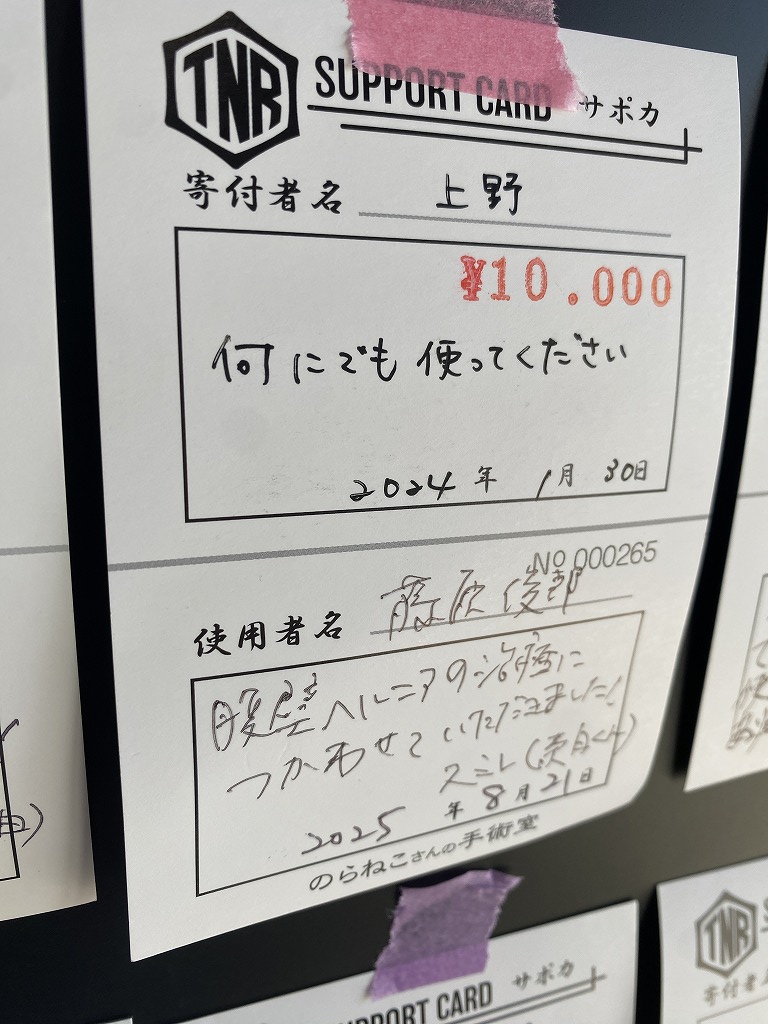 TNR SUPPORT CARD サポカ
寄付者名 上野
¥10.000
何にでも使ってください
2024年1月30日
No 000265
使用者名 藤原俊郎
腹壁ヘルニアの治療に
つかわせていただきました!
スミレ(茶白くん)
2025年8月21日
のらねこさんの手術室
SUPPORT CARD サポカ
TNR
寄付者